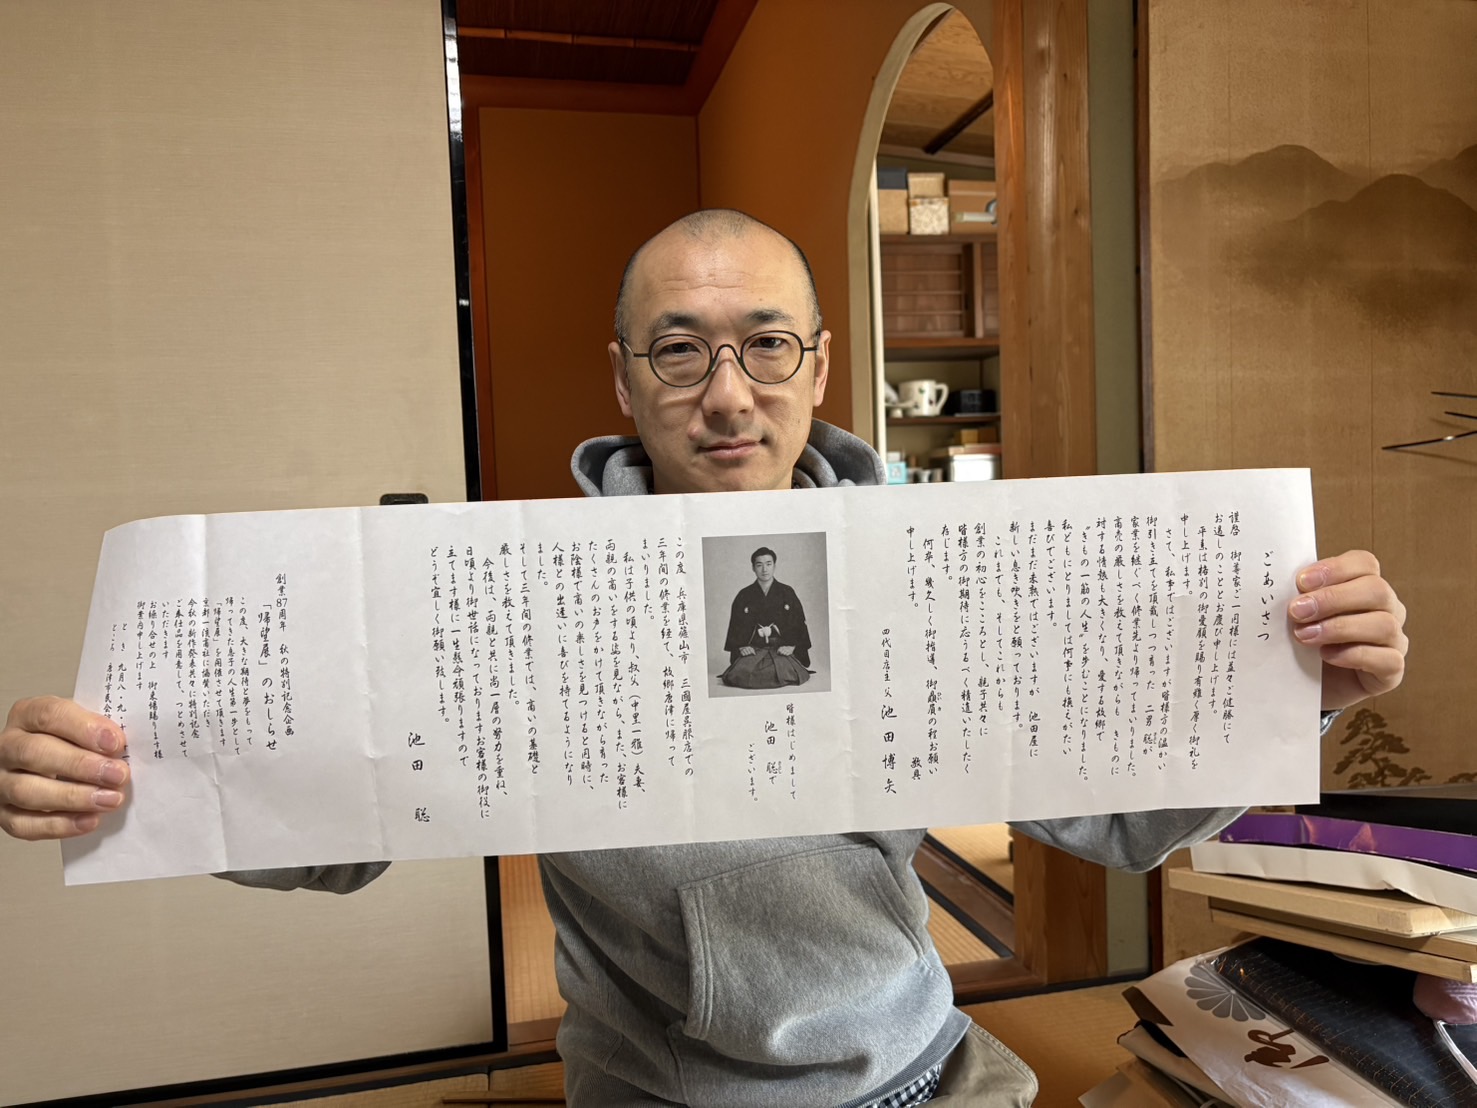 ごあいさつ
謹啓　御尊家ご一同様には益々ご健勝にて
お過しのこととお慶び申し上げます。
平素は格別の御愛顧を賜り有難く厚く御礼を
申し上げます。
さて、私事ではございますが皆様方の温かい
御引き立てを頂戴しつつ育った　二男　聡が
家業を継ぐべく修業先より帰ってまいりました。
商売の厳しさを教えて頂きながらも　きものに
対する情熱も大きくなり、愛する故郷で
“きもの一筋の人生”を歩むことになりました。
私どもにとりましては何事にも換えがたい
喜びでございます。
まだまだ未熟ではございますが　池田屋に
新しい息き吹きをと願っております。
これまでも、そしてこれからも
創業の初心をこころとし、親子共々に
皆様方の御期待に応うるべく精進いたしたく
存じます。
何卒、幾久しく御指導、御贔屓の程お願い
申し上げます。
敬具
四代目店主　父　池田博矢
皆様はじめまして
池田　聡で
ございます。
この度　兵庫県篠山市　三國屋呉服店での
三年間の修業を経て、故郷唐津に帰って
まいりました。
私は子供の頃より、叔父（中里一雅）夫妻、
両親の商いをする姿を見ながら、また、お客様に
たくさんのお声をかけて頂きながら育った
お陰様で商いの楽しさを見つけると同時に、
人様との出逢いに喜びを持てるようになり
ました。
そして三年間の修業では、商いの基礎と
厳しさを教えて頂きました。
今後は、両親と共に尚一層の努力を重ね、
日頃より御世話になっておりますお客様の御役に
立てます様に一生懸命頑張りますので
どうぞ宜しく御願い致します。
池田　聡
創業87周年　秋の特別記念企画
「帰望展」のおしらせ
この度、大きな期待と夢をもって
帰ってきた息子の人生第一歩として
「帰望展」を開催させて頂きます
京都一流商社に協賛いただき
今秋の新作発表共々に特別記念
ご奉仕品を用意して、つとめさせて
いただきます
お繰り合せの上　御来場賜ります様
御案内申し上げます
とき　九月八・九・十
ところ　唐津市民会